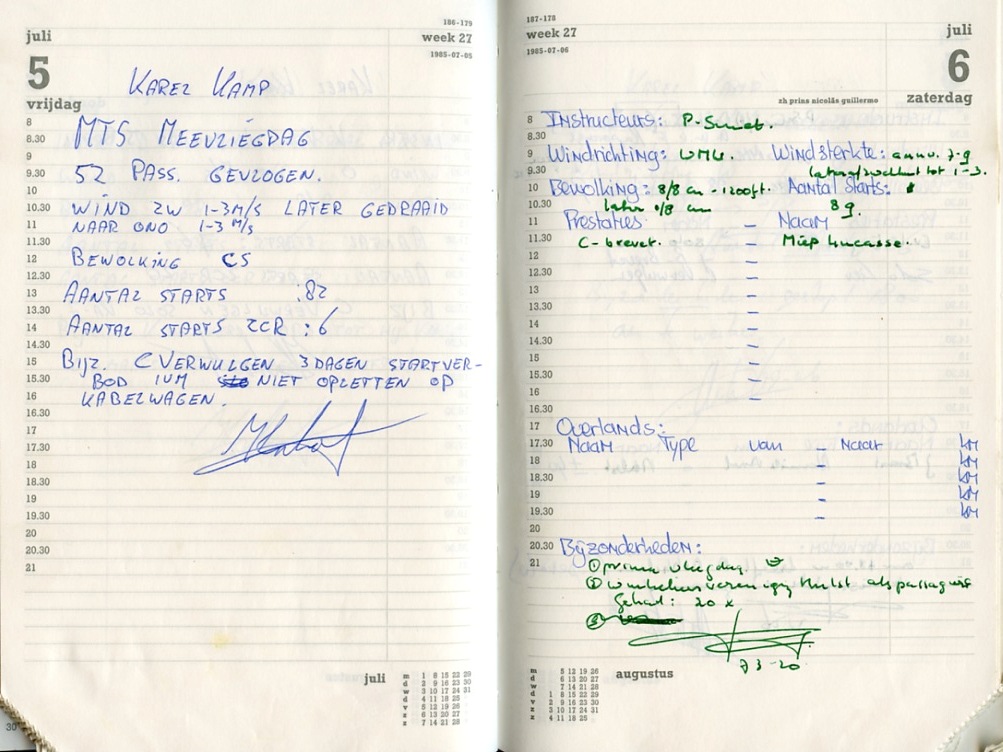 186-179
juli
week 27
1985-07-05
5
vrijdag
KAREL KAMP
8 MTS MEEVLIEGDAG
8.30
9 52 PASS. GEVLOGEN.
9.30
10
10.30 WIND ZW 1-3M/S LATER GEDRAAID
11 NAAR ONO 1-3 M/S
11.30
12 BEWOLKING CS
12.30
13 AANTAL STARTS :82
13.30
14 AANTAL STARTS ZCR : 6
14.30
15 BIJZ. C VERWULGEN 3 DAGEN STARTVER-
15.30 BOD IVM NIET OPLETTEN OP
16 KABELWAGEN.
16.30
17
17.30
18
18.30
19
19.30
20
20.30
21
juli
m 1 8 15 22 29
d 2 9 16 23 30
w 3 10 17 24 31
d 4 11 18 25
v 5 12 19 26
z 6 13 20 27
z 7 14 21 28
30
187-178
week 27
juli
1985-07-06
6
zh prins nicolás guillermo
zaterdag
8 Instructeurs: P.
8.30
9 Windrichting: Windsterkte: 7-9
9.30 later tot 1-3.
10 Bewolking: 8/8 cu - 1200ft. Aantal starts:
10.30 later 0/8 cu 89.
11 Prestaties – Naam
11.30 C-brevet. – Miep
12 –
12.30 –
13 –
13.30 –
14 –
14.30 –
15 –
15.30 –
16 –
16.30
17 Overlands:
17.30 Naam Type van – Naar km
18 – km
18.30 – km
19 – km
19.30 – km
20
20.30 Bijzonderheden:
21 ① prima vliegdag.
② Hulst als passagiers
gehad: 20 x
③
augustus
m 5 12 19 26
d 6 13 20 27
w 7 14 21 28
d 1 8 15 22 29
v 2 9 16 23 30
z 3 10 17 24 31
z 4 11 18 25